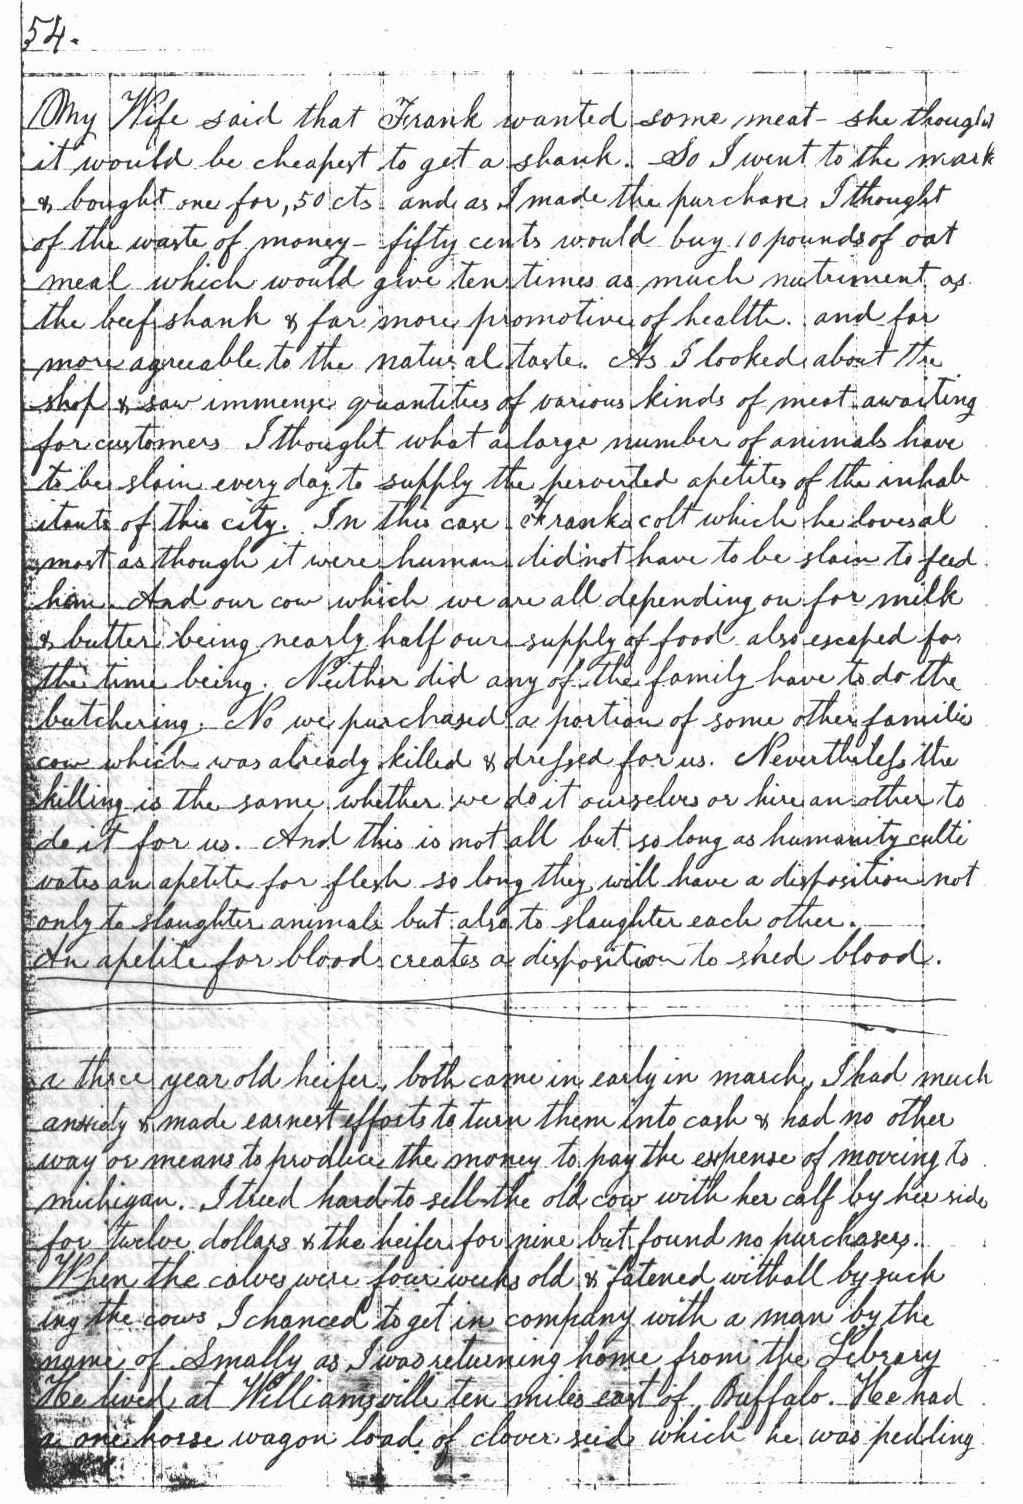 54.
My Wife said that Frank wanted some meat - she thought
it would be cheapest to get a shank. So I went to the mark
& bought one for ,50 cts and as I made the purchase I thought
of the waste of money - fifty cents would buy 10 pounds of oat
meal which would give ten times as much nutriment as
the beef shank & far more promotive of health. and far
more agreeable to the natural taste. As I looked about the
shop & saw immense quantities of various kinds of meat awaiting
for customers I thought what a large number of animals have
to be slain every day to supply the perverted apetites of the inhab
itants of this city. In this case Franks colt which he loves al
most as though it were human did not have to be slain to feed
him. And our cow which we are all depending on for milk
& butter being nearly half our supply of food also escaped for
the time being. Neither did any of the family have to do the
butchering. No we purchased a portion of some other families
cow which was already killed & dressed for us. Nevertheless the
killing is the same whether we do it ourselves or hire an other to
do it for us. And this is not all but so long as humanity culti
vates an apetite for flesh so long they will have a disposition not
only to slaughter animals but also to slaughter each other.
An apetite for blood creates a disposition to shed blood.
a three year old heifer, both came in early in march, I had much
anxiety & made earnest efforts to turn them into cash & had no other
way or means to produce the money to pay the expense of moveing to
michigan. I tried hard to sell the old cow with her calf by her side
for twelve dollars & the heifer for nine but found no purchasers.
When the calves were four weeks old & fatened withall by suck
ing the cows I chanced to get in company with a man by the
name of Smally as I was returning home from the Library
He lived at Williamsville ten miles east of Buffalo. He had
a one horse wagon load of clover seed which he was pedling